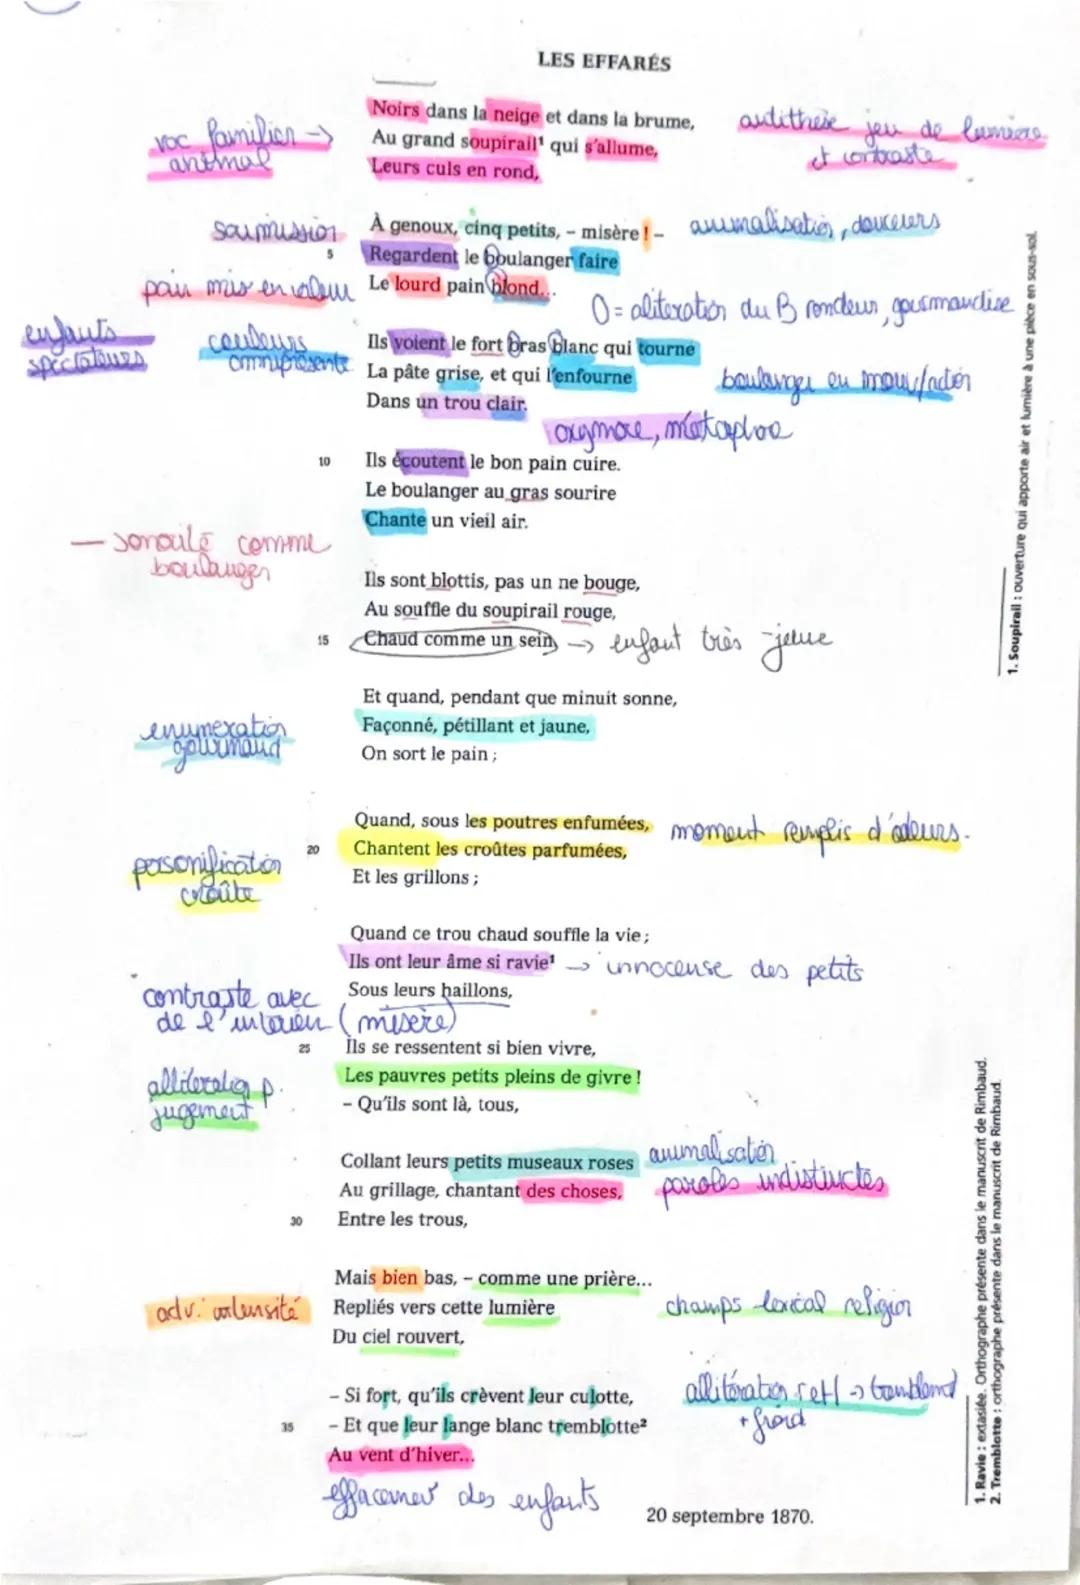 LES EFFARÉS
Noirs dans la neige et dans la brume,
antithèse jeu de lumière
voc familier →
Au grand soupirail¹ qui s'allume,
et contraste
animal
Leurs culs en rond,
soumission
À genoux, cinq petits, – misère ! –
animalisation, douceurs
5
Regardent le boulanger faire
pain mis en valeur
Le lourd pain blond...
O = aliteration du B rondeur, gourmandise
enfants
spectateurs
couleurs
omniprésente
Ils voient le fort bras blanc qui tourne
La pâte grise, et qui l'enfourne
boulanger en mouv/action
Dans un trou clair.
oxymore, métaphore
10
Ils écoutent le bon pain cuire.
Le boulanger au gras sourire
Chante un vieil air.
— sonorité comme
boulanger
Ils sont blottis, pas un ne bouge,
Au souffle du soupirail rouge,
15
Chaud comme un sein, → enfant très jeune
Et quand, pendant que minuit sonne,
enumeration
gourmand
Façonné, pétillant et jaune,
On sort le pain ;
Quand, sous les poutres enfumées,
moment remplis d'odeurs.
20
Chantent les croûtes parfumées,
personification
croûte
Et les grillons ;
Quand ce trou chaud souffle la vie ;
Ils ont leur âme si ravie¹ → innocense des petits
Sous leurs haillons,
contraste avec
de l'interieur (misère)
25
Ils se ressentent si bien vivre,
Les pauvres petits pleins de givre !
alliteration p.
jugement
– Qu'ils sont là, tous,
Collant leurs petits museaux roses
animalisation
Au grillage, chantant des choses,
paroles indistinctes
30
Entre les trous,
Mais bien bas, – comme une prière...
adv. intensité
Repliés vers cette lumière
champs lexical religion
Du ciel rouvert,
– Si fort, qu'ils crèvent leur culotte,
allitération r et l → tremblement
+ froid
35
– Et que leur lange blanc tremblotte²
Au vent d'hiver...
des enfants
20 septembre 1870.
1. Soupirail : ouverture qui apporte air et lumière à une pièce en sous-sol.
1. Ravie : extasiée. Orthographe présente dans le manuscrit de Rimbaud.
2. Tremblotte : orthographe présente dans le manuscrit de Rimbaud.